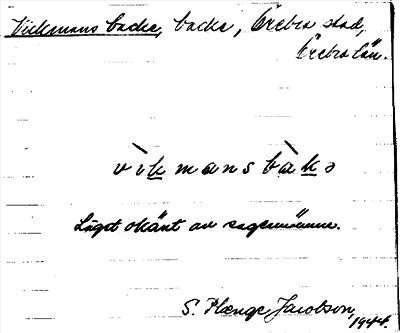 Vickmans backe, backe, Örebro stad,
Örebro län.
vìkmansbàkə
Läget okänt av sagesmännen.
S. Plænge Jacobson,
1944.